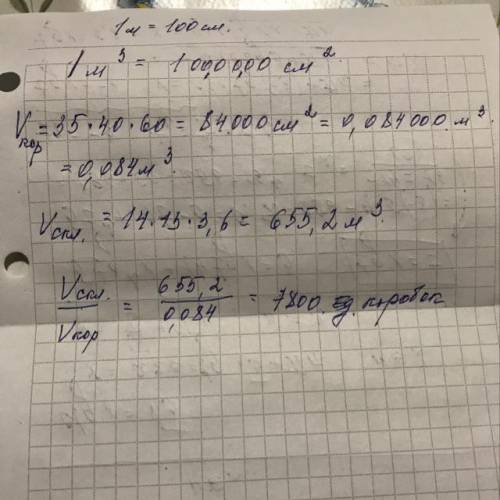 1м = 100 см.
1 м³ = 100,00,00 см²
Vкор = 35·40·60 = 84000 см² = 0,084000 м³
= 0,084 м³.
Vскл. = 14·13·3,6 = 655,2 м³.
Vскл. / Vкор = 655,2 / 0,084 = 7800 коробок